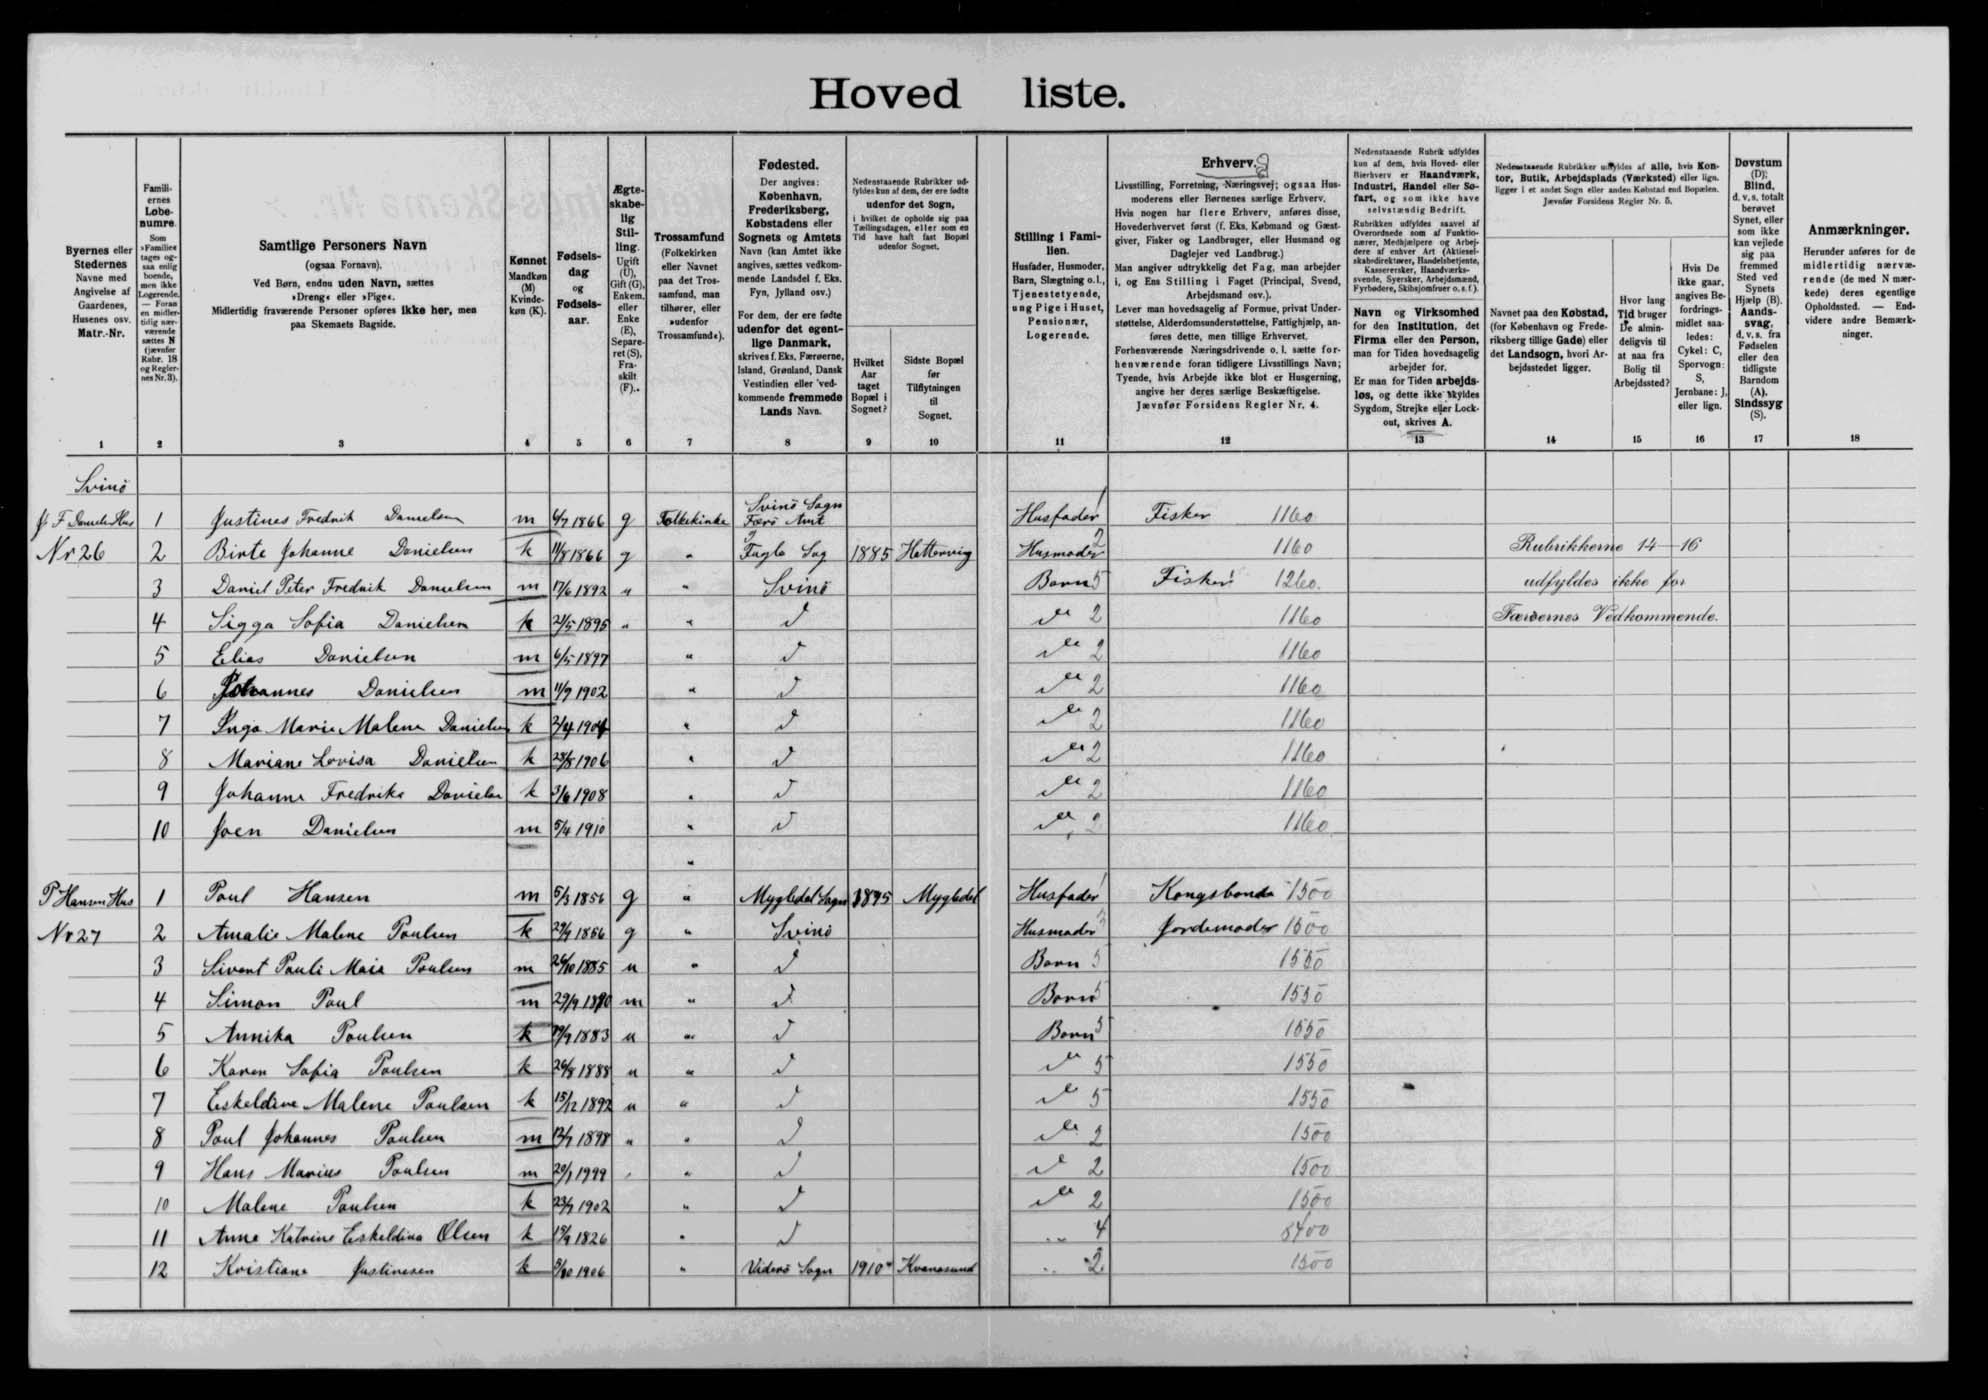 Hoved liste.
Byernes eller Stedernes Navne med Angivelse af Gaardenes, Husenes osv. Matr.-Nr.
Famili-ernes Løbe-numre. Som »Familie« tages og-saa enlig boende, men ikke Logerende. — Foran en midler-tidig nær-værende sættes N (jævnfør Rubr. 18 og Regler-nes Nr. 3).
Samtlige Personers Navn
(ogsaa Fornavn).
Ved Børn, endnu uden Navn, sættes
»Dreng« eller »Pige«.
Midlertidig fraværende Personer opføres ikke her, men
paa Skemaets Bagside.
Kønnet Mandkøn (M) Kvinde-køn (K).
Fødsels-dag og Fødsels-aar.
Ægte-skabe-lig Stil-ling. Ugift (U), Gift (G), Enkem. eller Enke (E), Separe-ret (S), Fra-skilt (F).
Trossamfund (Folkekirken eller Navnet paa det Tros-samfund, man tilhører, eller »udenfor Trossamfund«).
Fødested. Der angives: København, Frederiksberg, Købstadens eller Sognets og Amtets Navn (kan Amtet ikke angives, sættes vedkom-mende Landsdel f. Eks. Fyn, Jylland osv.) For dem, der ere fødte udenfor det egent-lige Danmark, skrives f. Eks. Færøerne, Island, Grønland, Dansk Vestindien eller ved-kommende fremmede Lands Navn.
Nedenstaaende Rubrikker ud-fyldes kun af dem, der ere fødte udenfor det Sogn, i hvilket de opholde sig paa Tællingsdagen, eller som en Tid have haft fast Bopæl udenfor Sognet.
Hvilket Aar taget Bopæl i Sognet?
Sidste Bopæl før Tilflytningen til Sognet.
Stilling i Fami-lien. Husfader, Husmoder, Barn, Slægtning o. l., Tjenestetyende, ung Pige i Huset, Pensionær, Logerende.
Erhverv.
Livsstilling, Forretning, Næringsvej; ogsaa Hus-moderens eller Børnenes særlige Erhverv.
Hvis nogen har flere Erhverv, anføres disse, Hovederhvervet først (f. Eks. Købmand og Gæst-giver, Fisker og Landbruger, eller Husmand og Daglejer ved Landbrug.)
Man angiver udtrykkelig det Fag, man arbejder i, og Ens Stilling i Faget (Principal, Svend, Arbejdsmand osv.).
Lever man hovedsagelig af Formue, privat Under-støttelse, Alderdomsunderstøttelse, Fattighjælp, an-føres dette, men tillige Erhvervet.
Forhenværende Næringsdrivende o. l. sætte for-henværende foran tidligere Livsstillings Navn; Tyende, hvis Arbejde ikke blot er Husgerning, angive her deres særlige Beskæftigelse.
Jævnfør Forsidens Regler Nr. 4.
Nedenstaaende Rubrik udfyldes kun af dem, hvis Hoved- eller Bierhverv er Haandværk, Industri, Handel eller Sø-fart, og som ikke have selvstændig Bedrift.
Rubrikken udfyldes saavel af Overordnede som af Funktio-nærer, Medhjælpere og Arbej-dere af enhver Art (Aktiesel-skabsdirektører, Handelsbetjente, Kasserersker, Haandværks-svende, Syersker, Arbejdsmænd, Fyrbødere, Skibsjomfruer o. s. f.).
Navn og Virksomhed for den Institution, det Firma eller den Person, man for Tiden hovedsagelig arbejder for.
Er man for Tiden arbejds-løs, og dette ikke skyldes Sygdom, Strejke eller Lock-out, skrives A.
Nedenstaaende Rubrikker udfyldes af alle, hvis Kon-tor, Butik, Arbejdsplads (Værksted) eller lign. ligger i et andet Sogn eller anden Købstad end Bopælen. Jævnfør Forsidens Regler Nr. 5.
Navnet paa den Købstad, (for København og Frede-riksberg tillige Gade) eller det Landsogn, hvori Ar-bejdsstedet ligger.
Hvor lang Tid bruger De almin-deligvis til at naa fra Bolig til Arbejdssted?
Hvis De ikke gaar, angives Be-fordrings-midlet saa-ledes: Cykel: C, Sporvogn: S, Jernbane: J, eller lign.
Døvstum (D); Blind, d. v. s. totalt berøvet Synet, eller som ikke kan vejlede sig paa fremmed Sted ved Synets Hjælp (B). Aands-svag, d. v. s. fra Fødselen eller den tidligste Barndom (A). Sindssyg (S).
Anmærkninger. Herunder anføres for de midlertidig nærvæ-rende (de med N mær-kede) deres egentlige Opholdssted. — End-videre andre Bemærk-ninger.
1 2 3 4 5 6 7 8 9 10 11 12 13 14 15 16 17 18
Svinö
J F Danielsen Hus 1 Justines Fredrik Danielsen m 6/7 1866 g Folkekirke Svinö Sogn Færö Amt Husfader 1 Fisker 1160
Nr 26 2 Birte Johanne Danielsen k 11/8 1866 g " Fuglö Sog 1885 Hattervig Husmoder 2 1160 Rubrikkerne 14—16
3 Daniel Peter Fredrik Danielsen m 17/6 1892 " " Svinö Barn 5 Fisker 1260. udfyldes ikke for
4 Sigga Sofia Danielsen k 21/5 1895 " " d do 2 1160 Færøernes Vedkommende.
5 Elias Danielsen m 6/5 1897 " d do 2 1160
6 Johannes Danielsen m 11/9 1902 " d do 2 1160
7 Inga Marie Malene Danielsen k 2/4 1904 " d do 2 1160
8 Mariane Lovisa Danielsen k 28/8 1906 " d do 2 1160
9 Johanne Fredrike Danielsen k 3/6 1908 " d do 2 1160
10 Joen Danielsen m 5/4 1910 " d do 2 1160
"
P Hansen Hus 1 Poul Hansen m 5/3 1856 g " Mygledal Sogn 1895 Mygledal Husfader 1 Kongsbonde 1500
Nr 27 2 Amalie Malene Poulsen k 29/9 1856 g " Svinö Husmoder 3 Jordemoder 1500
3 Sivert Pauli Maia Poulsen m 26/10 1885 u " d Barn 5 1550
4 Simon Poul m 29/9 1890 m " d. Barn 5 1550
5 Annika Poulsen k 19/9 1883 u " d Barn 5 1550
6 Karen Sofia Poulsen k 26/8 1888 u " d do 5 1550
7 Eskeldine Malene Poulsen k 15/12 1892 u " d do 5 1550
8 Poul Johannes Poulsen m 12/7 1898 " " d do 2 1500
9 Hans Marius Poulsen m 20/1 1999 " " d d 2 1500
10 Malene Poulsen k 23/7 1902 " d do 2 1500
11 Anne Katrine Eskeldina Olsen k 15/9 1826 " d " 4 5400
12 Kristiane Justinesen k 3/10 1906 " Viderö Sogn 1910 Kvanasund " 2 1500